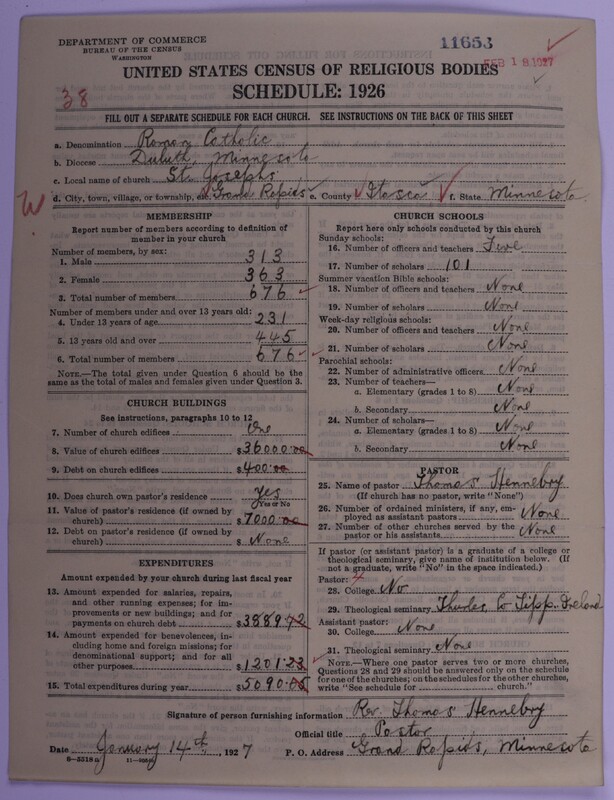 DEPARTMENT OF COMMERCE
BUREAU OF THE CENSUS
WASHINGTON
11653
FEB 18 1927
UNITED STATES CENSUS OF RELIGIOUS BODIES
38
SCHEDULE: 1926
FILL OUT A SEPARATE SCHEDULE FOR EACH CHURCH. SEE INSTRUCTIONS ON THE BACK OF THIS SHEET
a. Denomination Roman Catholic
b. Diocese Duluth, Minnesota
c. Local name of church St. Josephs
W d. City, town, village, or township, etc. Grand Rapids e. County Itasca f. State Minnesota
MEMBERSHIP
Report number of members according to definition of
member in your church
Number of members, by sex:
1. Male 313
2. Female 363
3. Total number of members 676
Number of members under and over 13 years old:
4. Under 13 years of age 231
5. 13 years old and over 445
6. Total number of members 676
NOTE.—The total given under Question 6 should be
same as the total of males and females given under Question 3.
CHURCH BUILDINGS
See instructions, paragraphs 10 to 12
7. Number of church edifices One
8. Value of church edifices $36000.00
9. Debt on church edifices $400.00
10. Does church own pastor's residence Yes
(Yes or No)
11. Value of pastor's residence (if owned by
church) $7000.00
12. Debt on pastor's residence (if owned by
church) $None
EXPENDITURES
Amount expended by your church during last fiscal year
13. Amount expended for salaries, repairs,
and other running expenses; for im-
provements or new buildings; and for
payments on church debt $3889.42
14. Amount expended for benevolences, in-
cluding home and foreign missions; for
denominational support; and for all
other purposes $1201.23
15. Total expenditures during year $5090.65
CHURCH SCHOOLS
Report here only schools conducted by this church
Sunday schools:
16. Number of officers and teachers Five
17. Number of scholars 101
Summer vacation Bible schools:
18. Number of officers and teachers None
19. Number of scholars None
Week-day religious schools:
20. Number of officers and teachers None
21. Number of scholars None
Parochial schools:
22. Number of administrative officers None
23. Number of teachers—
a. Elementary (grades 1 to 8) None
b. Secondary None
24. Number of scholars—
a. Elementary (grades 1 to 8) None
b. Secondary None
PASTOR
25. Name of pastor Thomas Hennebry
(If church has no pastor, write "None")
26. Number of ordained ministers, if any, em-
ployed as assistant pastors None
27. Number of other churches served by the
pastor or his assistants None
If pastor (or assistant pastor) is a graduate of a college or
theological seminary, give name of institution below. (If
not a graduate, write "No" in the space indicated.)
Pastor:
28. College No
29. Theological seminary Thurles Co Tipp. Ireland
Assistant pastor:
30. College None
31. Theological seminary None
NOTE.—Where one pastor serves two or more churches,
Questions 28 and 29 should be answered only on the schedule
for one of the churches; on the schedules for the other churches,
write "See schedule for church."
Signature of person furnishing information Rev. Thomas Hennebry
Official title Pastor
Date January 14th, 1927 P. O. Address Grand Rapids, Minnesota